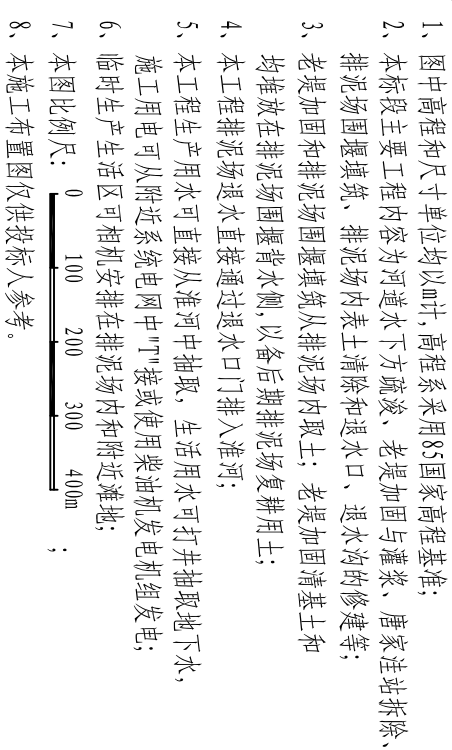 1、图中高程和尺寸单位均以m计,高程系采用85国家高程基准;
2、本标段主要工程内容为河道水下方疏浚、老堤加固与灌浆、唐家洼站拆除、
排泥场围堰填筑、排泥场内表土清除和退水口、退水沟的修建等;
3、老堤加固和排泥场围堰填筑从排泥场内取土;老堤加固清基土和
均堆放在排泥场围堰背水侧,以备后期排泥场复耕用土;
4、本工程排泥场退水直接通过退水口门排入淮河;
5、本工程生产用水可直接从淮河中抽取,生活用水可打井抽取地下水,
施工用电可从附近系统电网中"T"接或使用柴油机发电机组发电;
6、临时生产生活区可相机安排在排泥场内和附近滩地;
7、本图比例尺: 0 100 200 300 400m ;
8、本施工布置图仅供投标人参考。